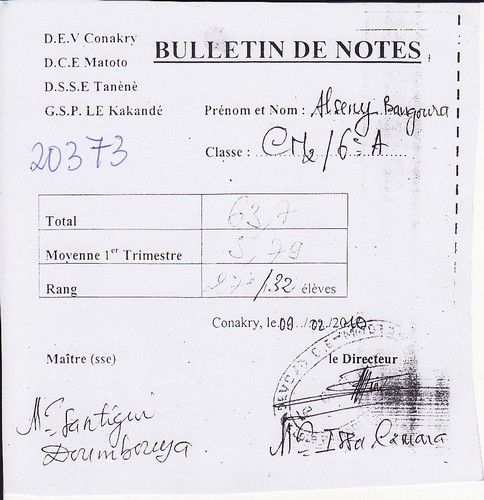 D.E.V Conakry
BULLETIN DE NOTES
D.C.E Matoto
D.S.S.E Tanènè
G.S.P. LE Kakandé
Prénom et Nom : Alseny Bangoura
20373
Classe : CM2/6e A
Total 63,7
Moyenne 1er Trimestre 5,79
Rang 27e/32 élèves
Conakry, le 09/02/2010
Maître (sse)
le Directeur
Mr Santigui
Doumbouya
Mr Issa Camara